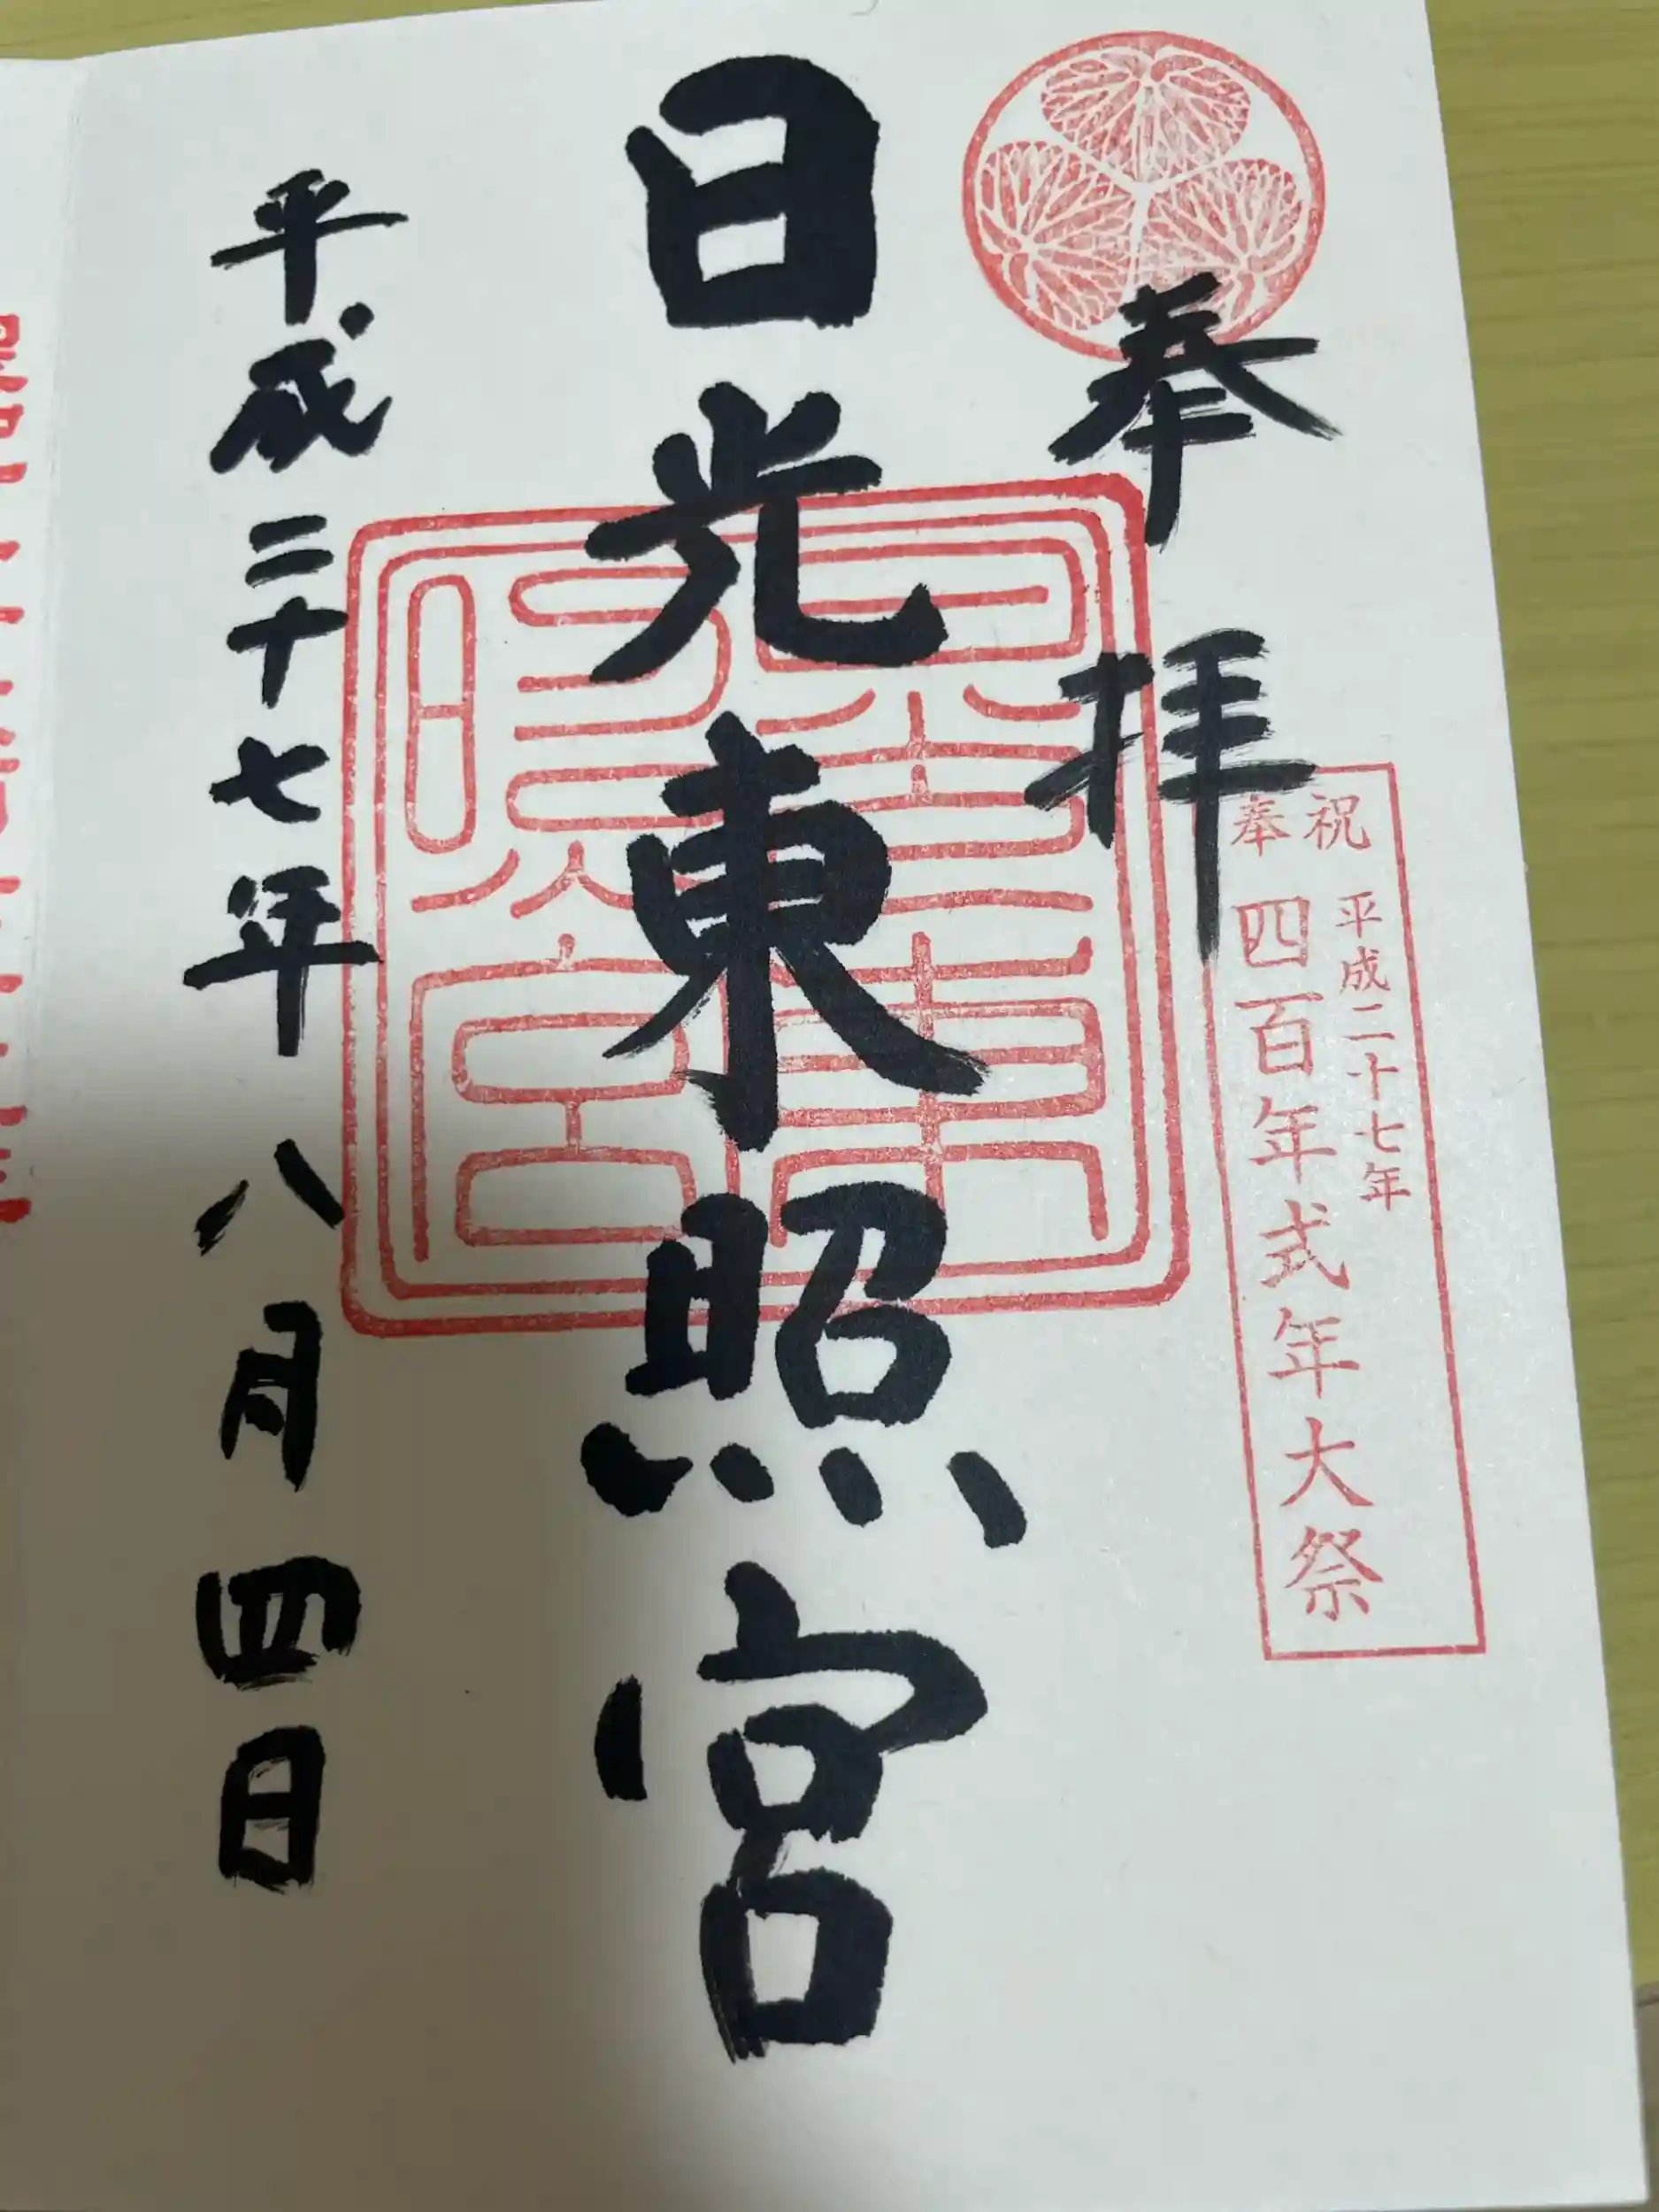 奉祝
平成二十七年
四百年式年大祭
奉拝
日光東照宮
平成二十七年八月四日